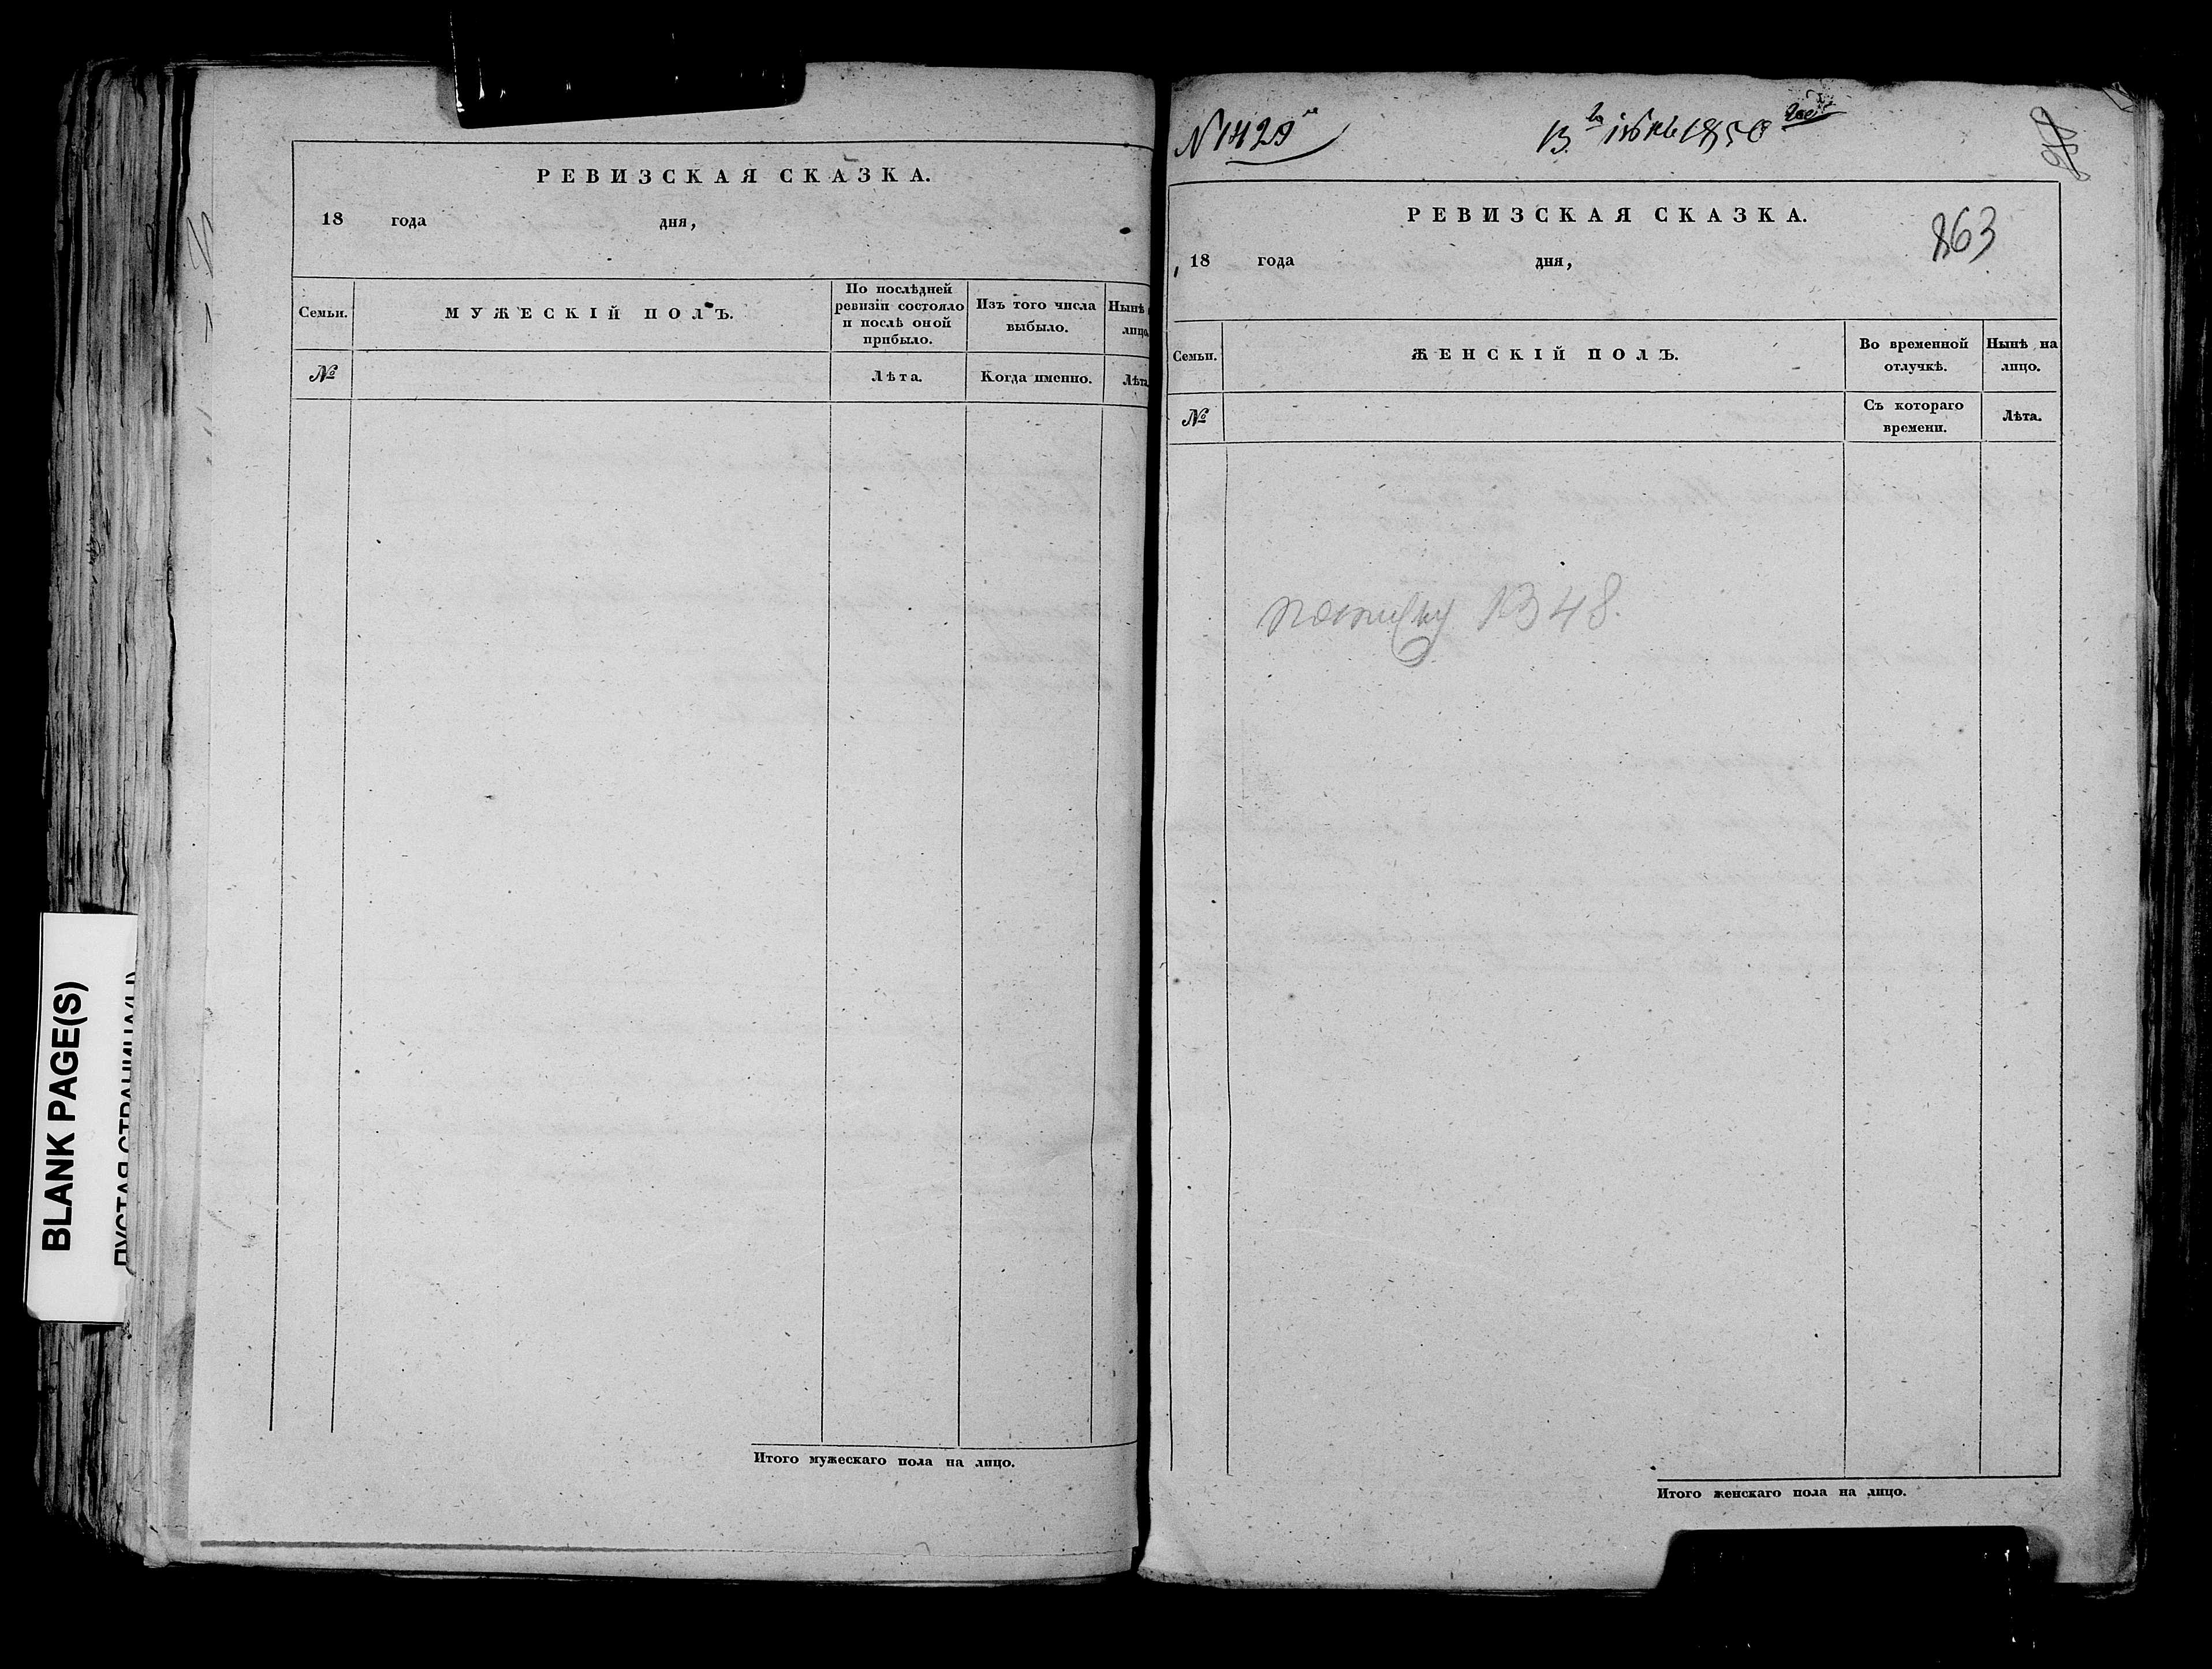 РЕВИЗСКАЯ СКАЗКА.
18 года дня,
Семьи.
МУЖЕСКІЙ ПОЛЪ.
По послѣдней
ревизіи состояло
и послѣ оной
прибыло.
Изъ того числа
выбыло.
Нынѣ
лицо
№
Лѣта.
Когда именно.
Лѣта
Итого мужескаго пола на лицо.
N 1429
13 іюня 1850 года
РЕВИЗСКАЯ СКАЗКА.
863
18 года дня,
Семьи.
ЖЕНСКІЙ ПОЛЪ.
Во временной
отлучкѣ.
Нынѣ на
лицо.
№
Съ котораго
времени.
Лѣта.
1348.
Итого женскаго пола на лицо.
BLANK PAGE(S)
ПУСТАЯ СТРАНИЦА(Ы)